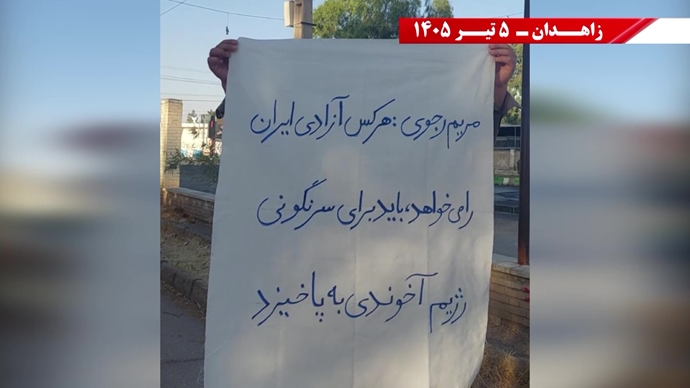 زاهدان ــ ۵ تیر ۱۴۰۵
مریم رجوی: هرکس آزادی ایران
را می‌خواهد، باید برای سرنگونی
رژیم آخوندی به پا خیزد